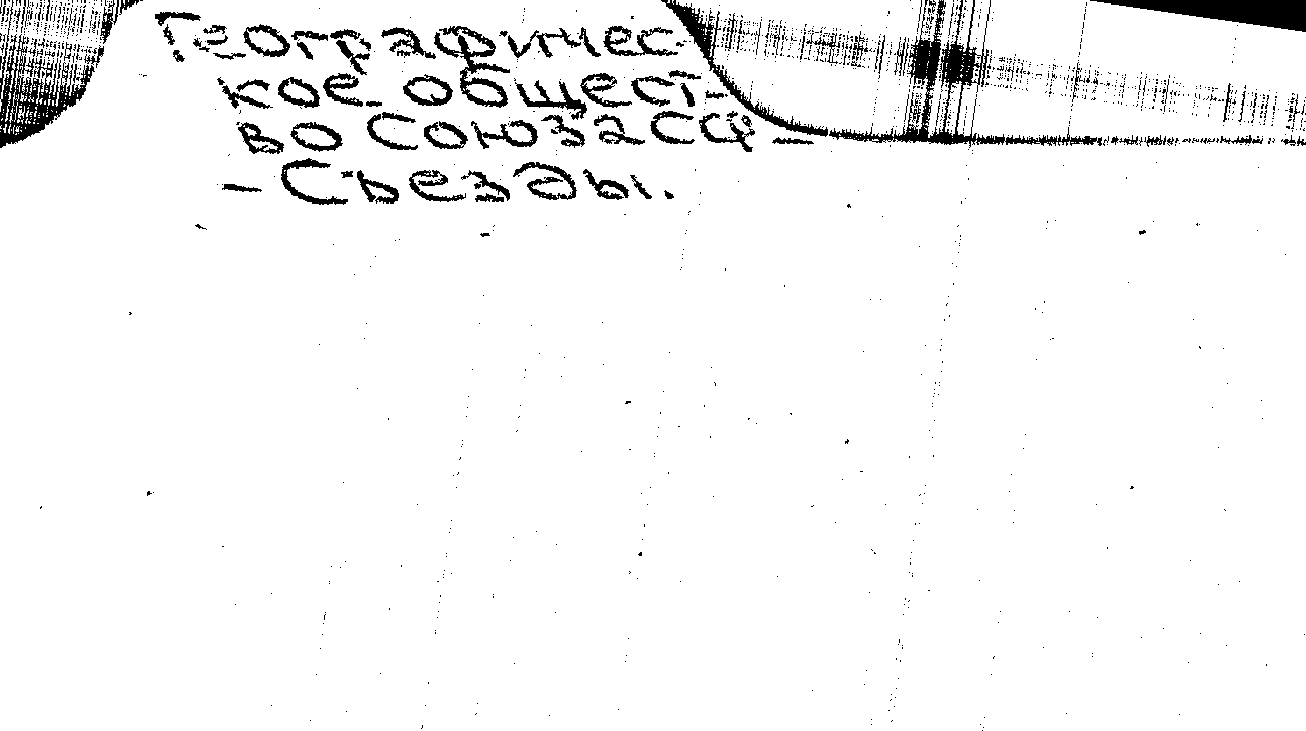 Географичес-
кое общест-
во Союза ССР –
– Съезды.